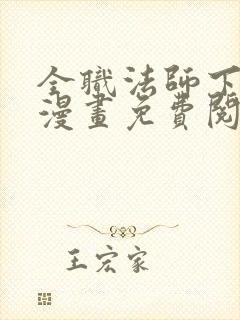 全職法師下
漫畫免費閱
王宏家